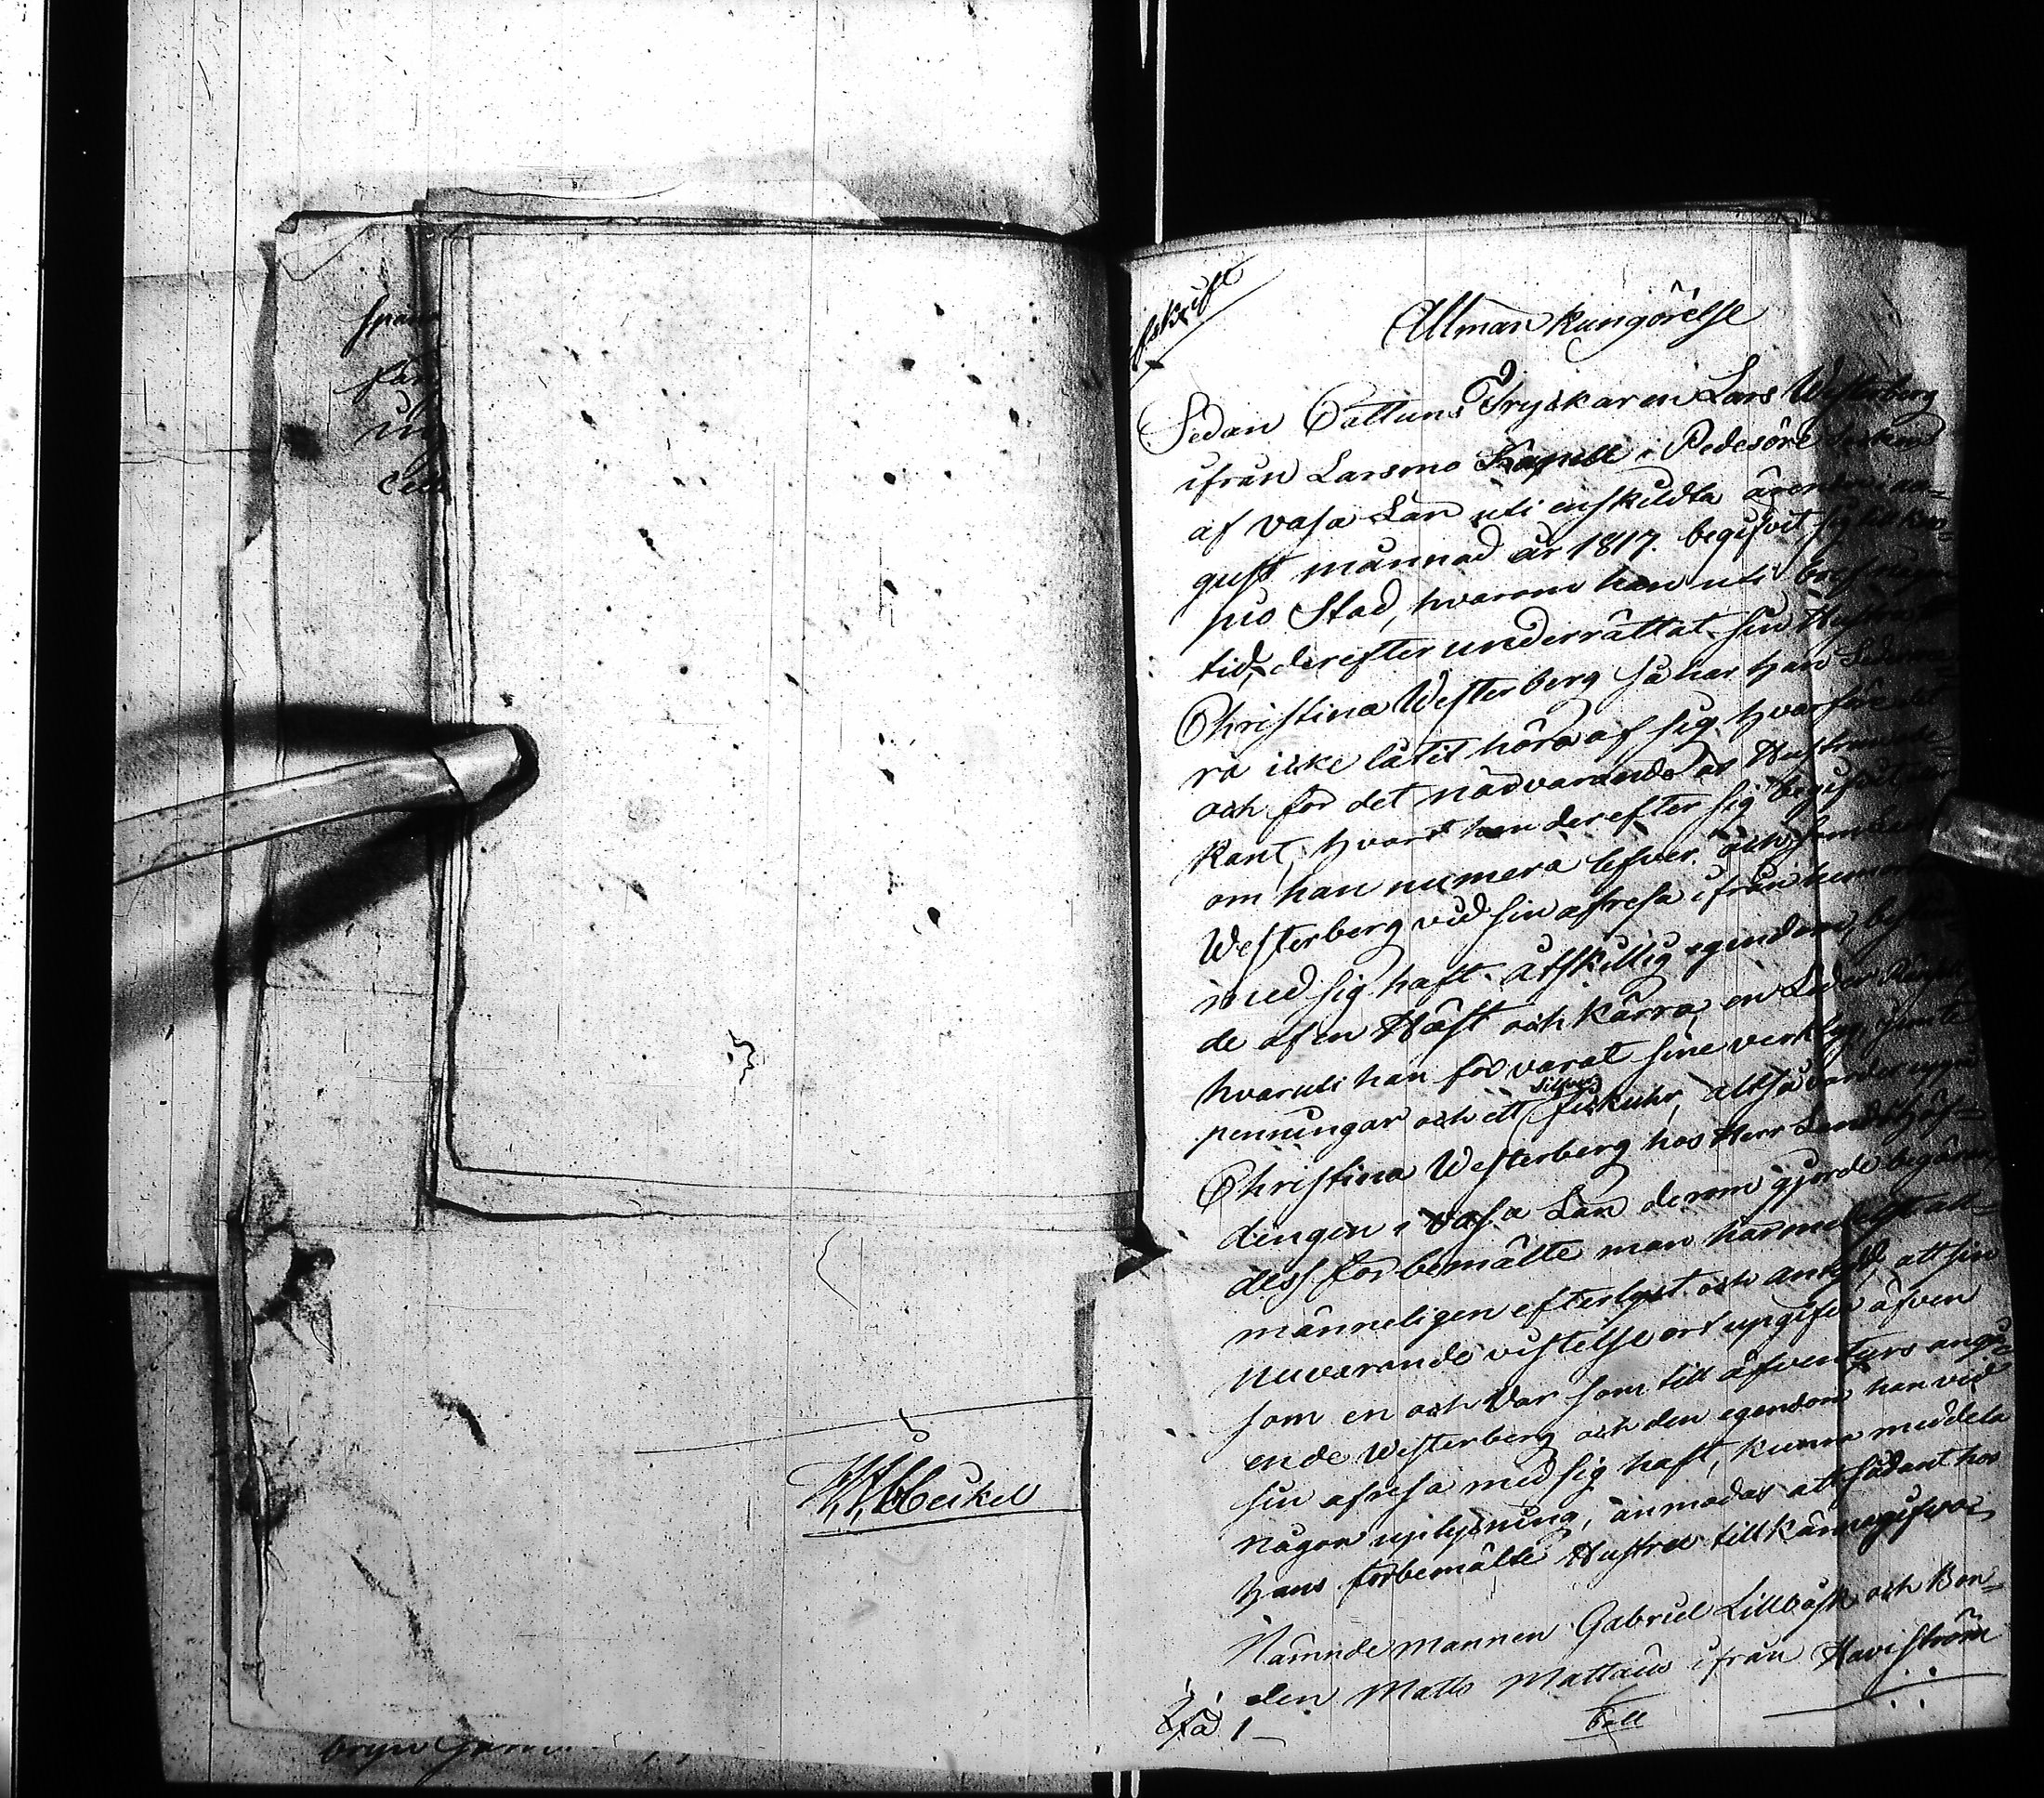 Afskrift
Allmän kungörelse
Sedan Cattuns Tryckaren Lars Westerberg
ifrån Larsmo Kapell i Pedersöre Sockn
af Vasa Län uti enskildta ärender i au=
gusti månnad år 1817. begifvit sig till Kuo=
pio Stad, hvarom han uti bref någon
tid derefter underrättat sin Hustru
Christina Westerberg så har han Sederme=
ra icke låtit höra af sig hvarföre det
och för det närvarande är Hustrun obe=
kant, hvart han derefter sig begifvit, och
om han numera lefver. och som
Westerberg vid sin afresa ifrån hemorten
med sig haft åtskillig egendom, bestå=
de af en Häst och Kärra, en Läder
hvaruti han förvarat sine verktyg, jemte
penningar och ett silfver fickuhr, Altså varder uppå
Christina Westerberg hos Herr Landshöf=
dingen i Vasa Län derom gjorde begäran,
dess förbemälte man härmedelst all=
männeligen efterlyst och antyd, att sin
nuvarande vistelse ort upgifva äfven
som en och Var som till äfventyrs angå
ende Westerberg och den egendom han vid
sin afresa med sig haft, kunna meddela
någon uplysning, anmodas att sådant hos
hans förbemälte Hustru tillkännagifva.
Nämndemannen Gabriel Lillbåsk och Bon=
den Matts Mattsus ifrån Haviström
spann
bryn
H. H. Heikel